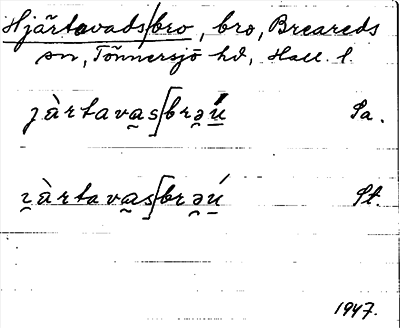 Hjärtavads/bro, bro, Breareds
sn, Tönnersjö hd, Hall. l.
jàrtava̰s[brə̰ú̱ Sa.
ɪ̰àrtava̰s[brə̰ú̱ St.
1947.